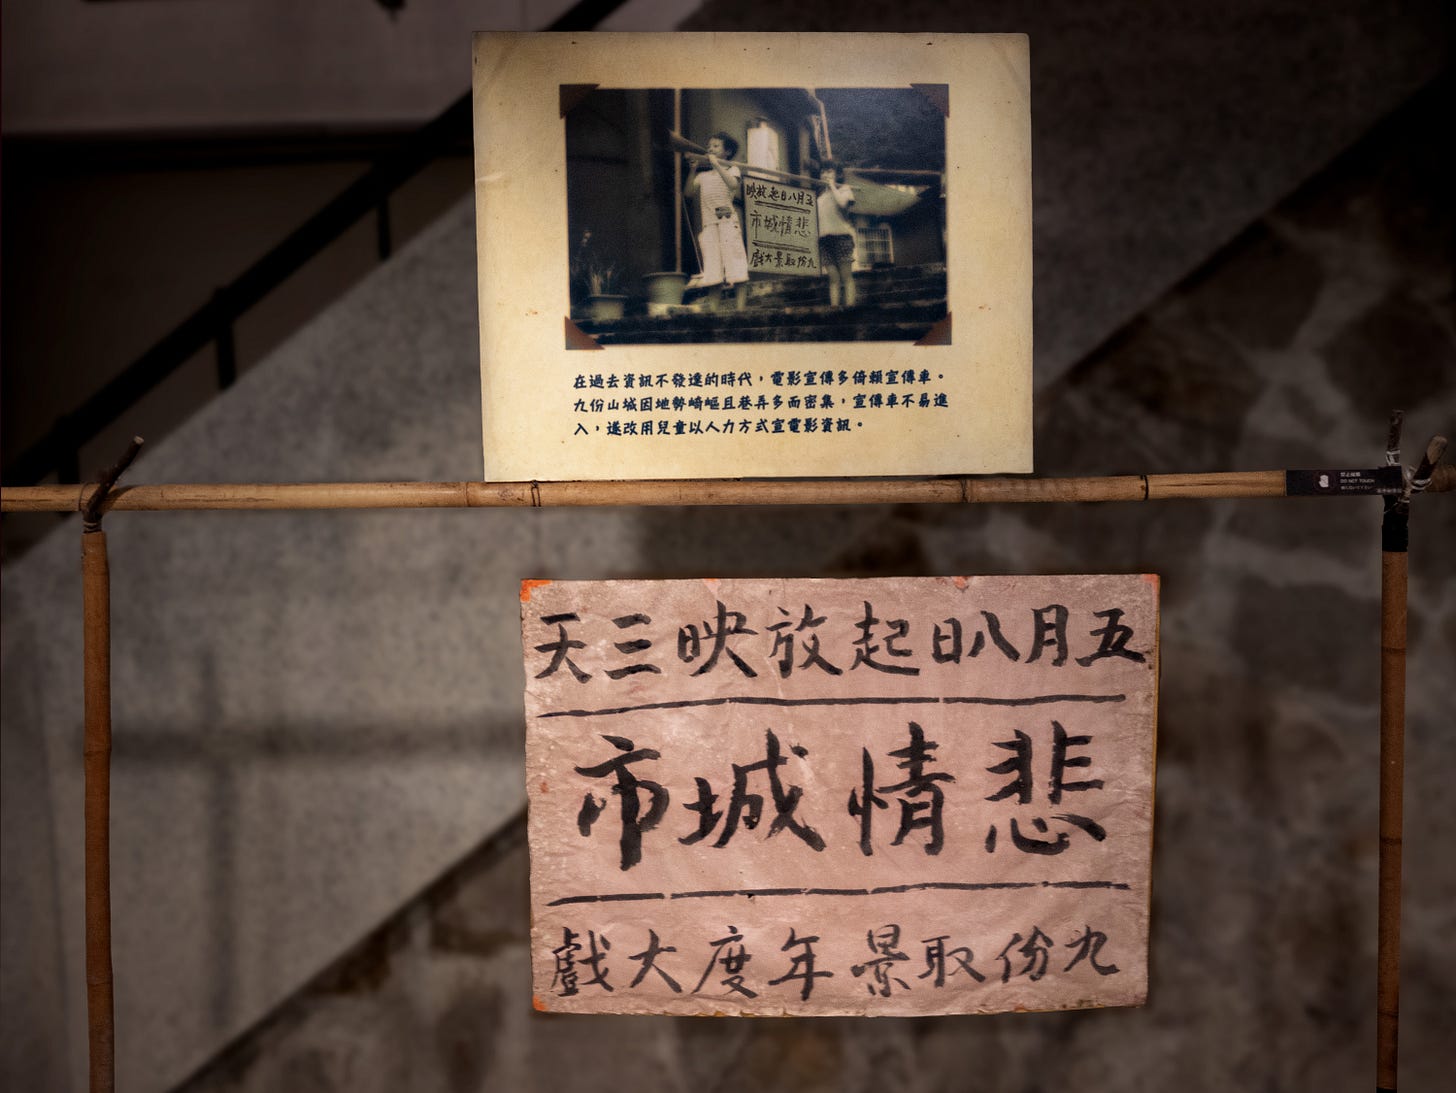 五月八日起放映
悲情城市
九份取景大戲
在過去資訊不發達的時代，電影宣傳多倚賴宣傳車。
九份山城因地勢崎嶇且巷弄多而密集，宣傳車不易進
入，遂改用兒童以人力方式宣電影資訊。
禁止碰觸
DO NOT TOUCH
五月八日起放映三天
悲情城市
九份取景年度大戲